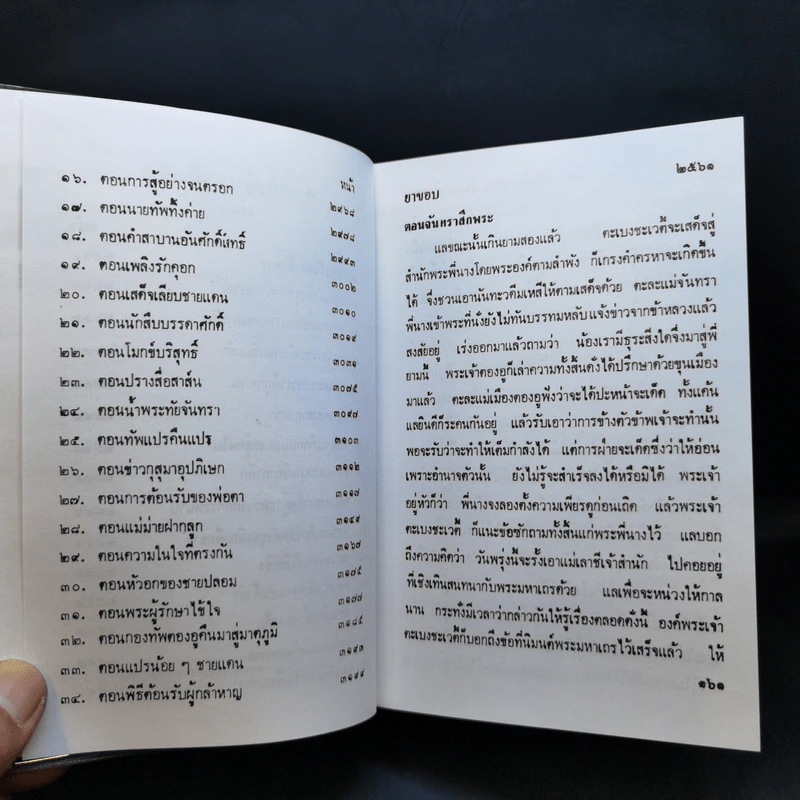 หน้า
๑๖. ตอนการสู้อย่างจนตรอก ๒๙๖๘
๑๗. ตอนนายทัพทิ้งค่าย ๒๙๗๘
๑๘. ตอนคำสาบานอันศักดิ์สิทธิ์ ๒๙๙๓
๑๙. ตอนเพลิงรักคุอก ๓๐๐๒
๒๐. ตอนเสด็จเลียบชายแดน ๓๐๑๐
๒๑. ตอนนักสืบบรรดาศักดิ์ ๓๐๑๙
๒๒. ตอนโมกข์บริสุทธิ์ ๓๐๓๑
๒๓. ตอนปรางสื่อสาส์น ๓๐๗๕
๒๔. ตอนน้ำพระทัยจันทรา ๓๐๙๗
๒๕. ตอนทัพแปรคืนแปร ๓๑๐๓
๒๖. ตอนข่าวกุสุมาอุปภิเษก ๓๑๑๒
๒๗. ตอนการต้อนรับของพ่อตา ๓๑๑๗
๒๘. ตอนแม่ม่ายฝากลูก ๓๑๔๙
๒๙. ตอนความในใจที่ตรงกัน ๓๑๖๗
๓๐. ตอนหัวอกของชายปลอม ๓๑๗๕
๓๑. ตอนพระผู้รักษาไข้ใจ ๓๑๗๗
๓๒. ตอนกองทัพตองอูคืนมาสู่มาตุภูมิ ๓๑๘๕
๓๓. ตอนแปรน้อย ๆ ชายแดน ๓๑๙๓
๓๔. ตอนพิธีต้อนรับผู้กล้าหาญ ๓๑๙๙
ยาขอบ ๒๕๖๑
ตอนจันทราสึกพระ
แลขณะนั้นเกินยามสองแล้ว ตะเบงชะเวตี้จะเสด็จสู่
สำนักพระพี่นางโดยพระองค์ตามลำพัง ก็เกรงคำครหาจะเกิดขึ้น
ได้ จึงชวนเอานันทะวดีมเหสีให้ตามเสด็จด้วย ตะละแม่จันทรา
พี่นางเข้าพระที่นั่งยังไม่ทันบรรทมหลับ แจ้งข่าวจากข้าหลวงแล้ว
สงสัยอยู่ เร่งออกมาแล้วถามว่า น้องเรามีธุระสิ่งใดจึ่งมาสู่พี่
ยามนี้ พระเจ้าตองอูก็เล่าความทั้งสิ้นดั่งได้ปรึกษาด้วยขุนเมือง
มาแล้ว ตะละแม่เมืองตองอูฟังว่าจะได้ปะหน้าจะเด็ด ทั้งแค้น
แลยินดีก็ระคนกันอยู่ แล้วรับเอาว่าการข้างตัวข้าพเจ้าจะทำนั้น
พอจะรับว่าจะทำให้เต็มกำลังได้ แต่การฝ่ายจะเด็ดซึ่งว่าให้อ่อน
เพราะอำนาจตัวนั้น ยังไม่รู้จะสำเร็จลงได้หรือมิได้ พระเจ้า
อยู่หัวก็ว่า พี่นางจงลองตั้งความเพียรดูก่อนเถิด แล้วพระเจ้า
ตะเบงชะเวตี้ ก็แนะข้อซักถามทั้งสิ้นแก่พระพี่นางไว้ แลบอก
ถึงความคิดว่า วันพรุ่งนี้จะรั้งเอาแม่เลาชีเจ้าสำนัก ไปคอยอยู่
ที่เชิงเทินสนทนากับพระมหาเถรด้วย แลเพื่อจะหน่วงให้กาล
นาน กระทั่งมีเวลาว่ากล่าวกันให้รู้เรื่องตลอดดั่งนี้ องค์พระเจ้า
ตะเบงชะเวตี้ก็บอกถึงข้อที่นิมนต์พระมหาเถรไว้เสร็จแล้ว ให้
๑๖๑